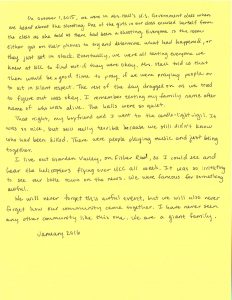 On October 1, 2015, we were in Mrs. Hall's U.S. Government class when
we heard about the shooting. One of the girls in our class bursted barefoot from
the class as she told us there had been a shooting. Everyone in the room
either got on their phones to try and determine what had happened, or
they just sat in shock. Eventually, we were all texting everyone we
knew at UCC to find out if they were okay. Mrs. Hall told us that
there would be a good time to pray if we were praying people or
to sit in silent respect. The rest of the day dragged on as we tried
to figure out was okay. I remember texting my family name after
name of who was alive. The halls were so quiet.
That night, my boyfriend and I went to the candle-light vigil. It
was so nice, but still really terrible because we still didn't know
who had been killed. There were people playing music and just being
together.
I live out Garden Valley, on Fisher Road, so I could see and
hear the helicopters flying over UCC all week. It was so
to see our little town on the news. We were famous for something
awful.
We will never forget this awful event, but we will also never
forget how our community came together. I have never seen
any other community like this one. We are a giant family.
January 2016